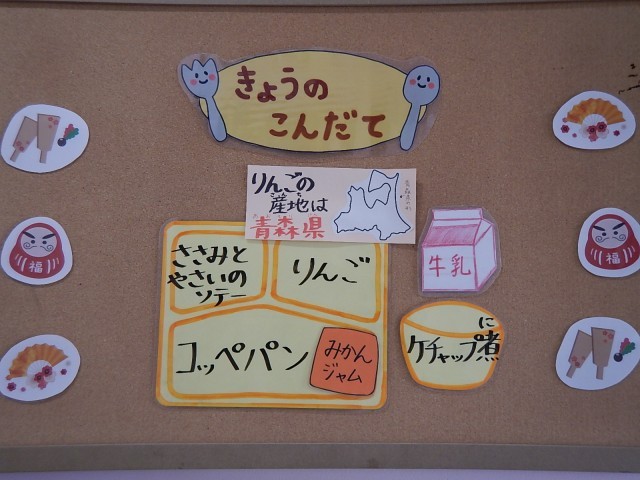 きょうの
こんだて
りんごの
産地は
青森県
ささみと
やさいの
ソテー
りんご
牛乳
コッペパン
みかん
ジャム
に
ケチャップ煮
福
福